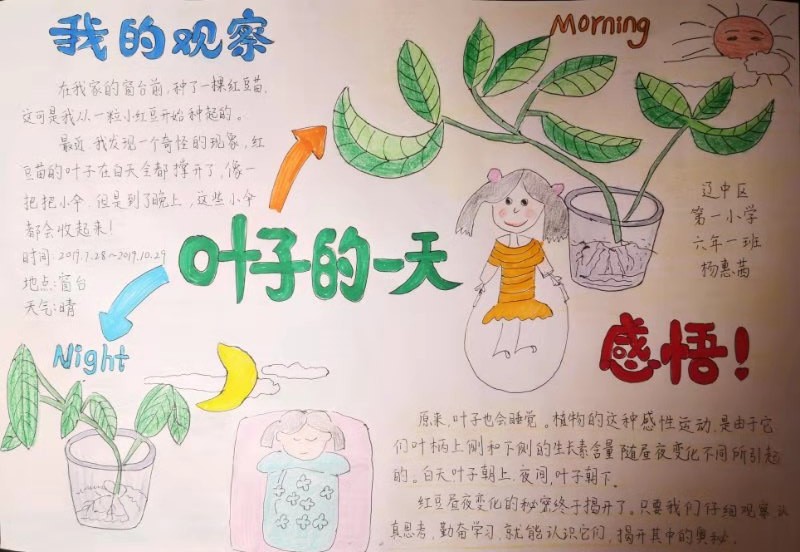 我的观察
在我家的窗台前,种了一棵红豆苗,
这可是我从一粒小红豆开始种起的。
最近,我发现一个奇怪的现象,红
豆苗的叶子在白天全都撑开了,像一
把把小伞,但是到了晚上,这些小伞
都会收起来!
时间:2019.7.28~2019.10.29
地点:窗台
天气:晴
Morning
辽中区
第一小学
六年一班
杨惠茜
叶子的一天
Night
感悟!
原来,叶子也会睡觉。植物的这种感性运动,是由于它
们叶柄上侧和下侧的生长素含量随昼夜变化不同所引起
的。白天叶子朝上,夜间,叶子朝下。
红豆昼夜变化的秘密终于揭开了。只要我们仔细观察,认
真思考,勤奋学习,就能认识它们,揭开其中的奥秘。